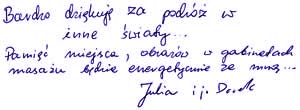 Bardzo dziękuję za podróż w
inne światy...
Pamięć miejsca, obrazów w gabinetach
masażu będzie energetycznie ze mną...
Julia i j.